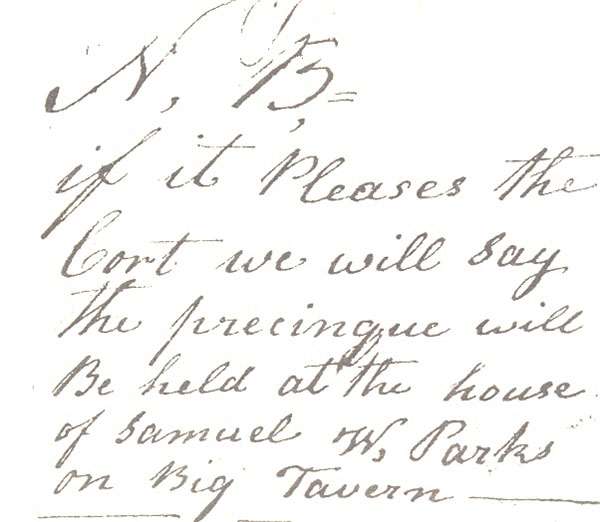 N, B,=
if it Pleases the
Cort we will say
the precinque will
Be held at the house
of Samuel W, Parks
on Big Tavern